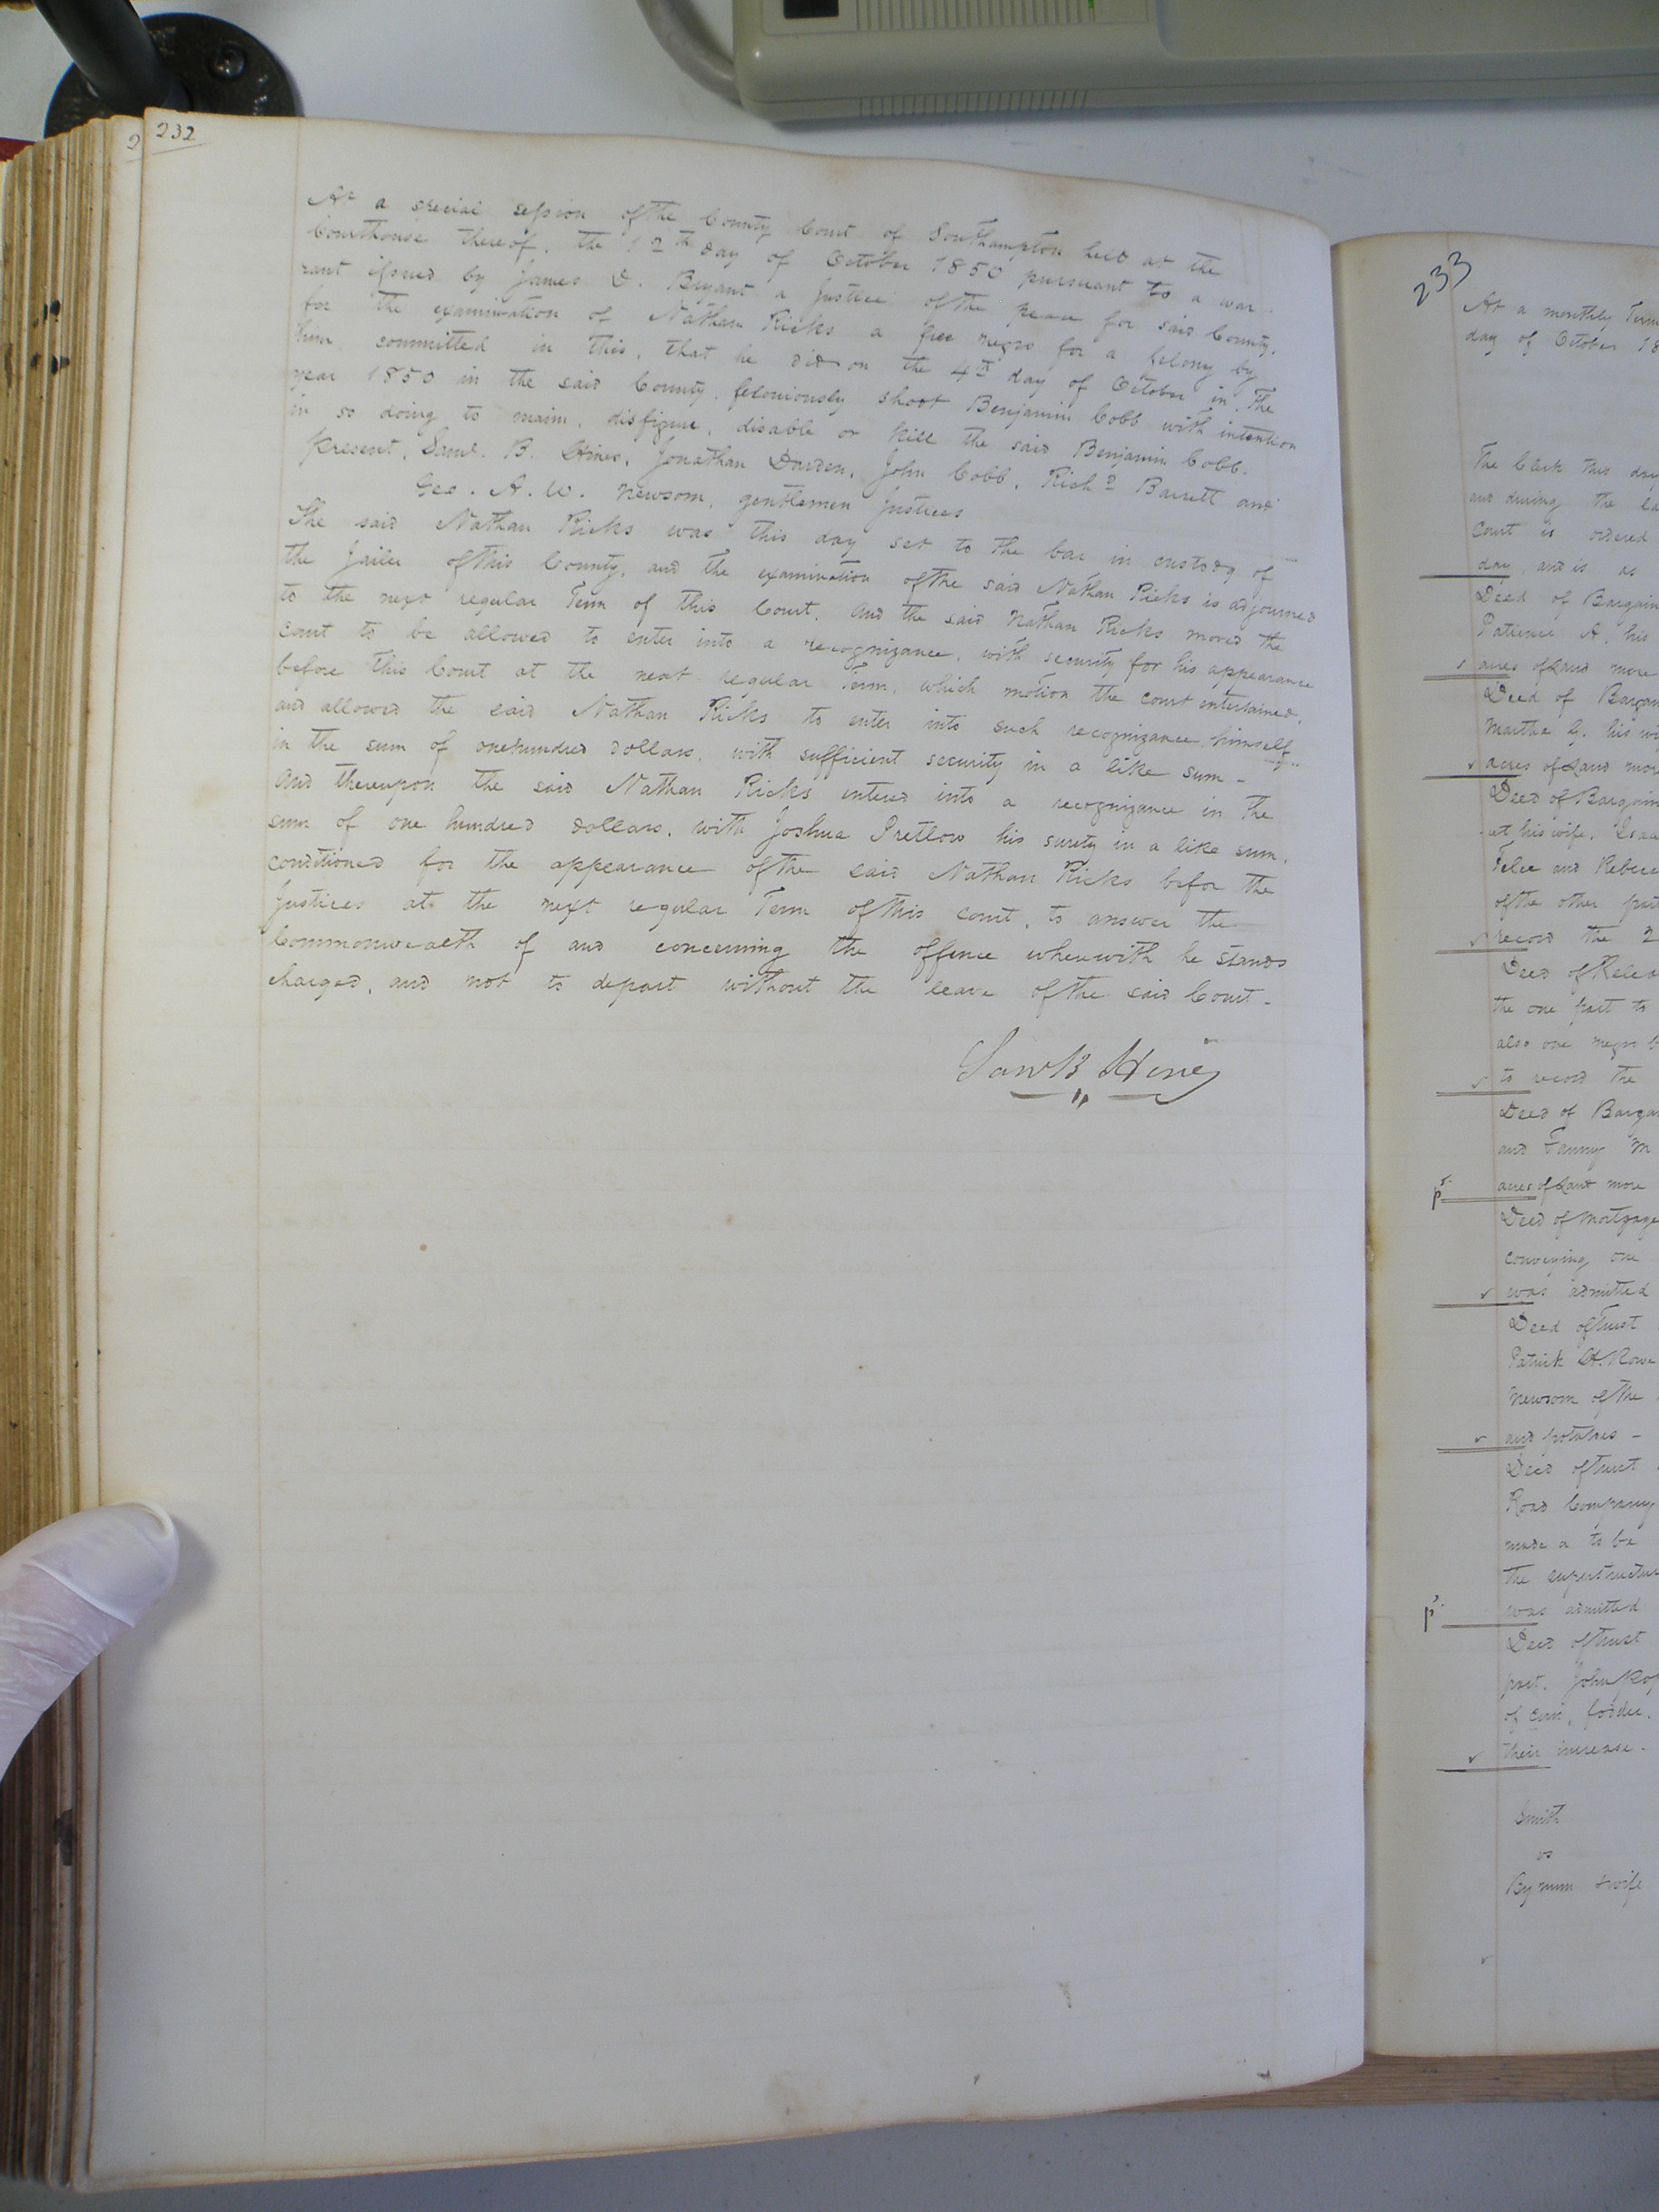 232
At a special session of the County Court of Southampton held at the
Courthouse thereof, the 12th day of October 1850 pursuant to a war-
rant issued by James D. Bryant a Justice of the peace for said County,
for the examination of Nathan Ricks a free negro for a felony by
him committed in this, that he did on the 4th day of October in the
year 1850 in the said County, feloniously shoot Benjamin Cobb with intention
in so doing to maim, disfigure, disable or kill the said Benjamin Cobb.
Present, Saml. B. Hines, Jonathan Darden, John Cobb, Richd Barrett and
Geo. A. W. Newsom, gentlemen Justices
The said Nathan Ricks was this day set to the bar in custody of
the Jailer of this County, and the examination of the said Nathan Ricks is adjourned
to the next regular Term of this Court. And the said Nathan Ricks moved the
court to be allowed to enter into a recognizance, with security for his appearance
before this Court at the next regular Term, which motion the court entertained,
and allowed the said Nathan Ricks to enter into such recognizance himself
in the sum of one hundred dollars, with sufficient security in a like sum -
And thereupon the said Nathan Ricks entered into a recognizance in the
sum of one hundred dollars, with Joshua Pretlow his surety in a like sum,
conditioned for the appearance of the said Nathan Ricks befor the
Justices at the next regular Term of this court, to answer the
Commonwealth of and concerning the offence wherewith he stands
charged, and not to depart without the leave of the said Court -
Saml B Hines
233
At a monthly Term
day of October 18
The Clerk this day
and during the la
Court is ordered
day, and is as
Deed of Bargain
Patience A. his
acres of Land more
Deed of Bargain
Martha G. his wi
acres of Land mor
Deed of Bargain
et his wife,
and Rebec
of the other part
record the 2
Deed of Relea
the one part to
also one negro b
to record the
Deed of Barga
and Fanny M
acres of Land more
Deed of Mortgage
conveying one
was admitted
Deed of Trust
Patrick H. Rowe
Newsom of the
and potatoes -
Deed of trust
Road Company
made or to be
the superstructur
was admitted
Deed of trust
part, John
of corn, fodder,
their increase -
Smith
vs
Bynum & wife